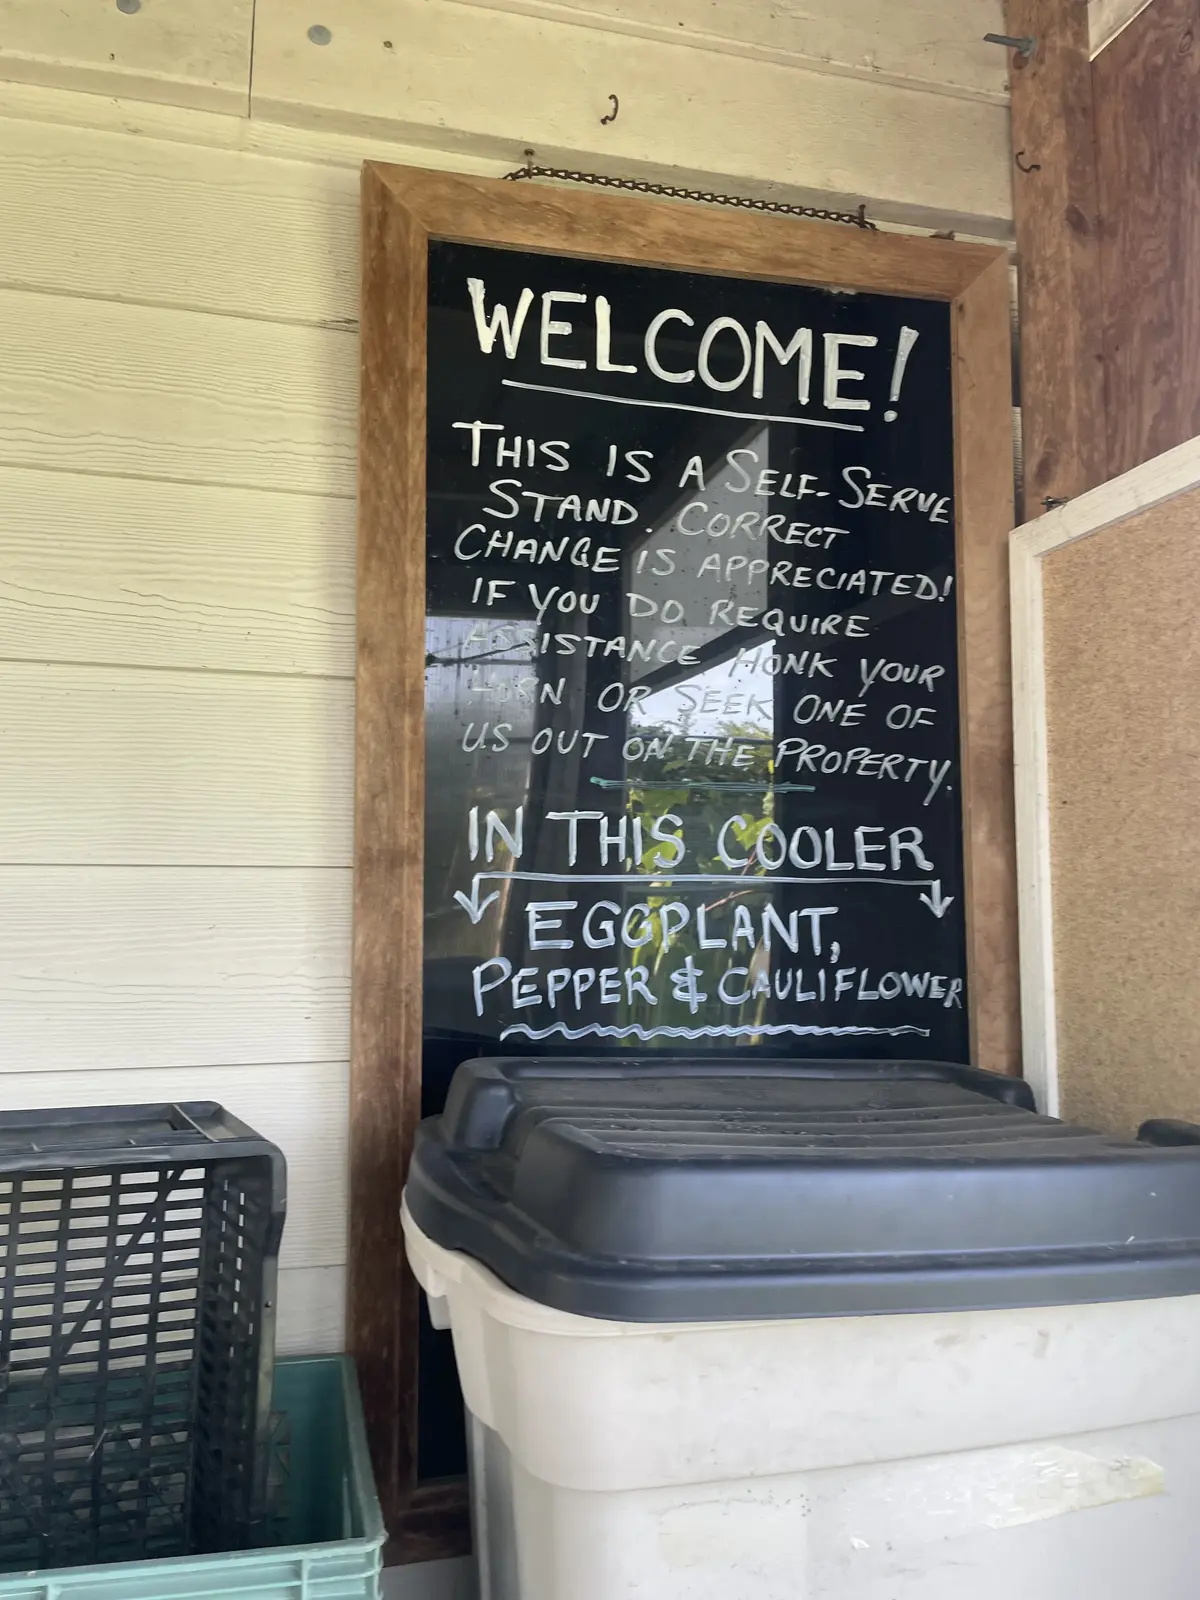 WELCOME!
THIS IS A SELF-SERVE
STAND. CORRECT
CHANGE IS APPRECIATED!
IF YOU DO REQUIRE
ASSISTANCE HONK YOUR
HORN OR SEEK ONE OF
US OUT ON THE PROPERTY.
IN THIS COOLER
EGGPLANT,
PEPPER & CAULIFLOWER